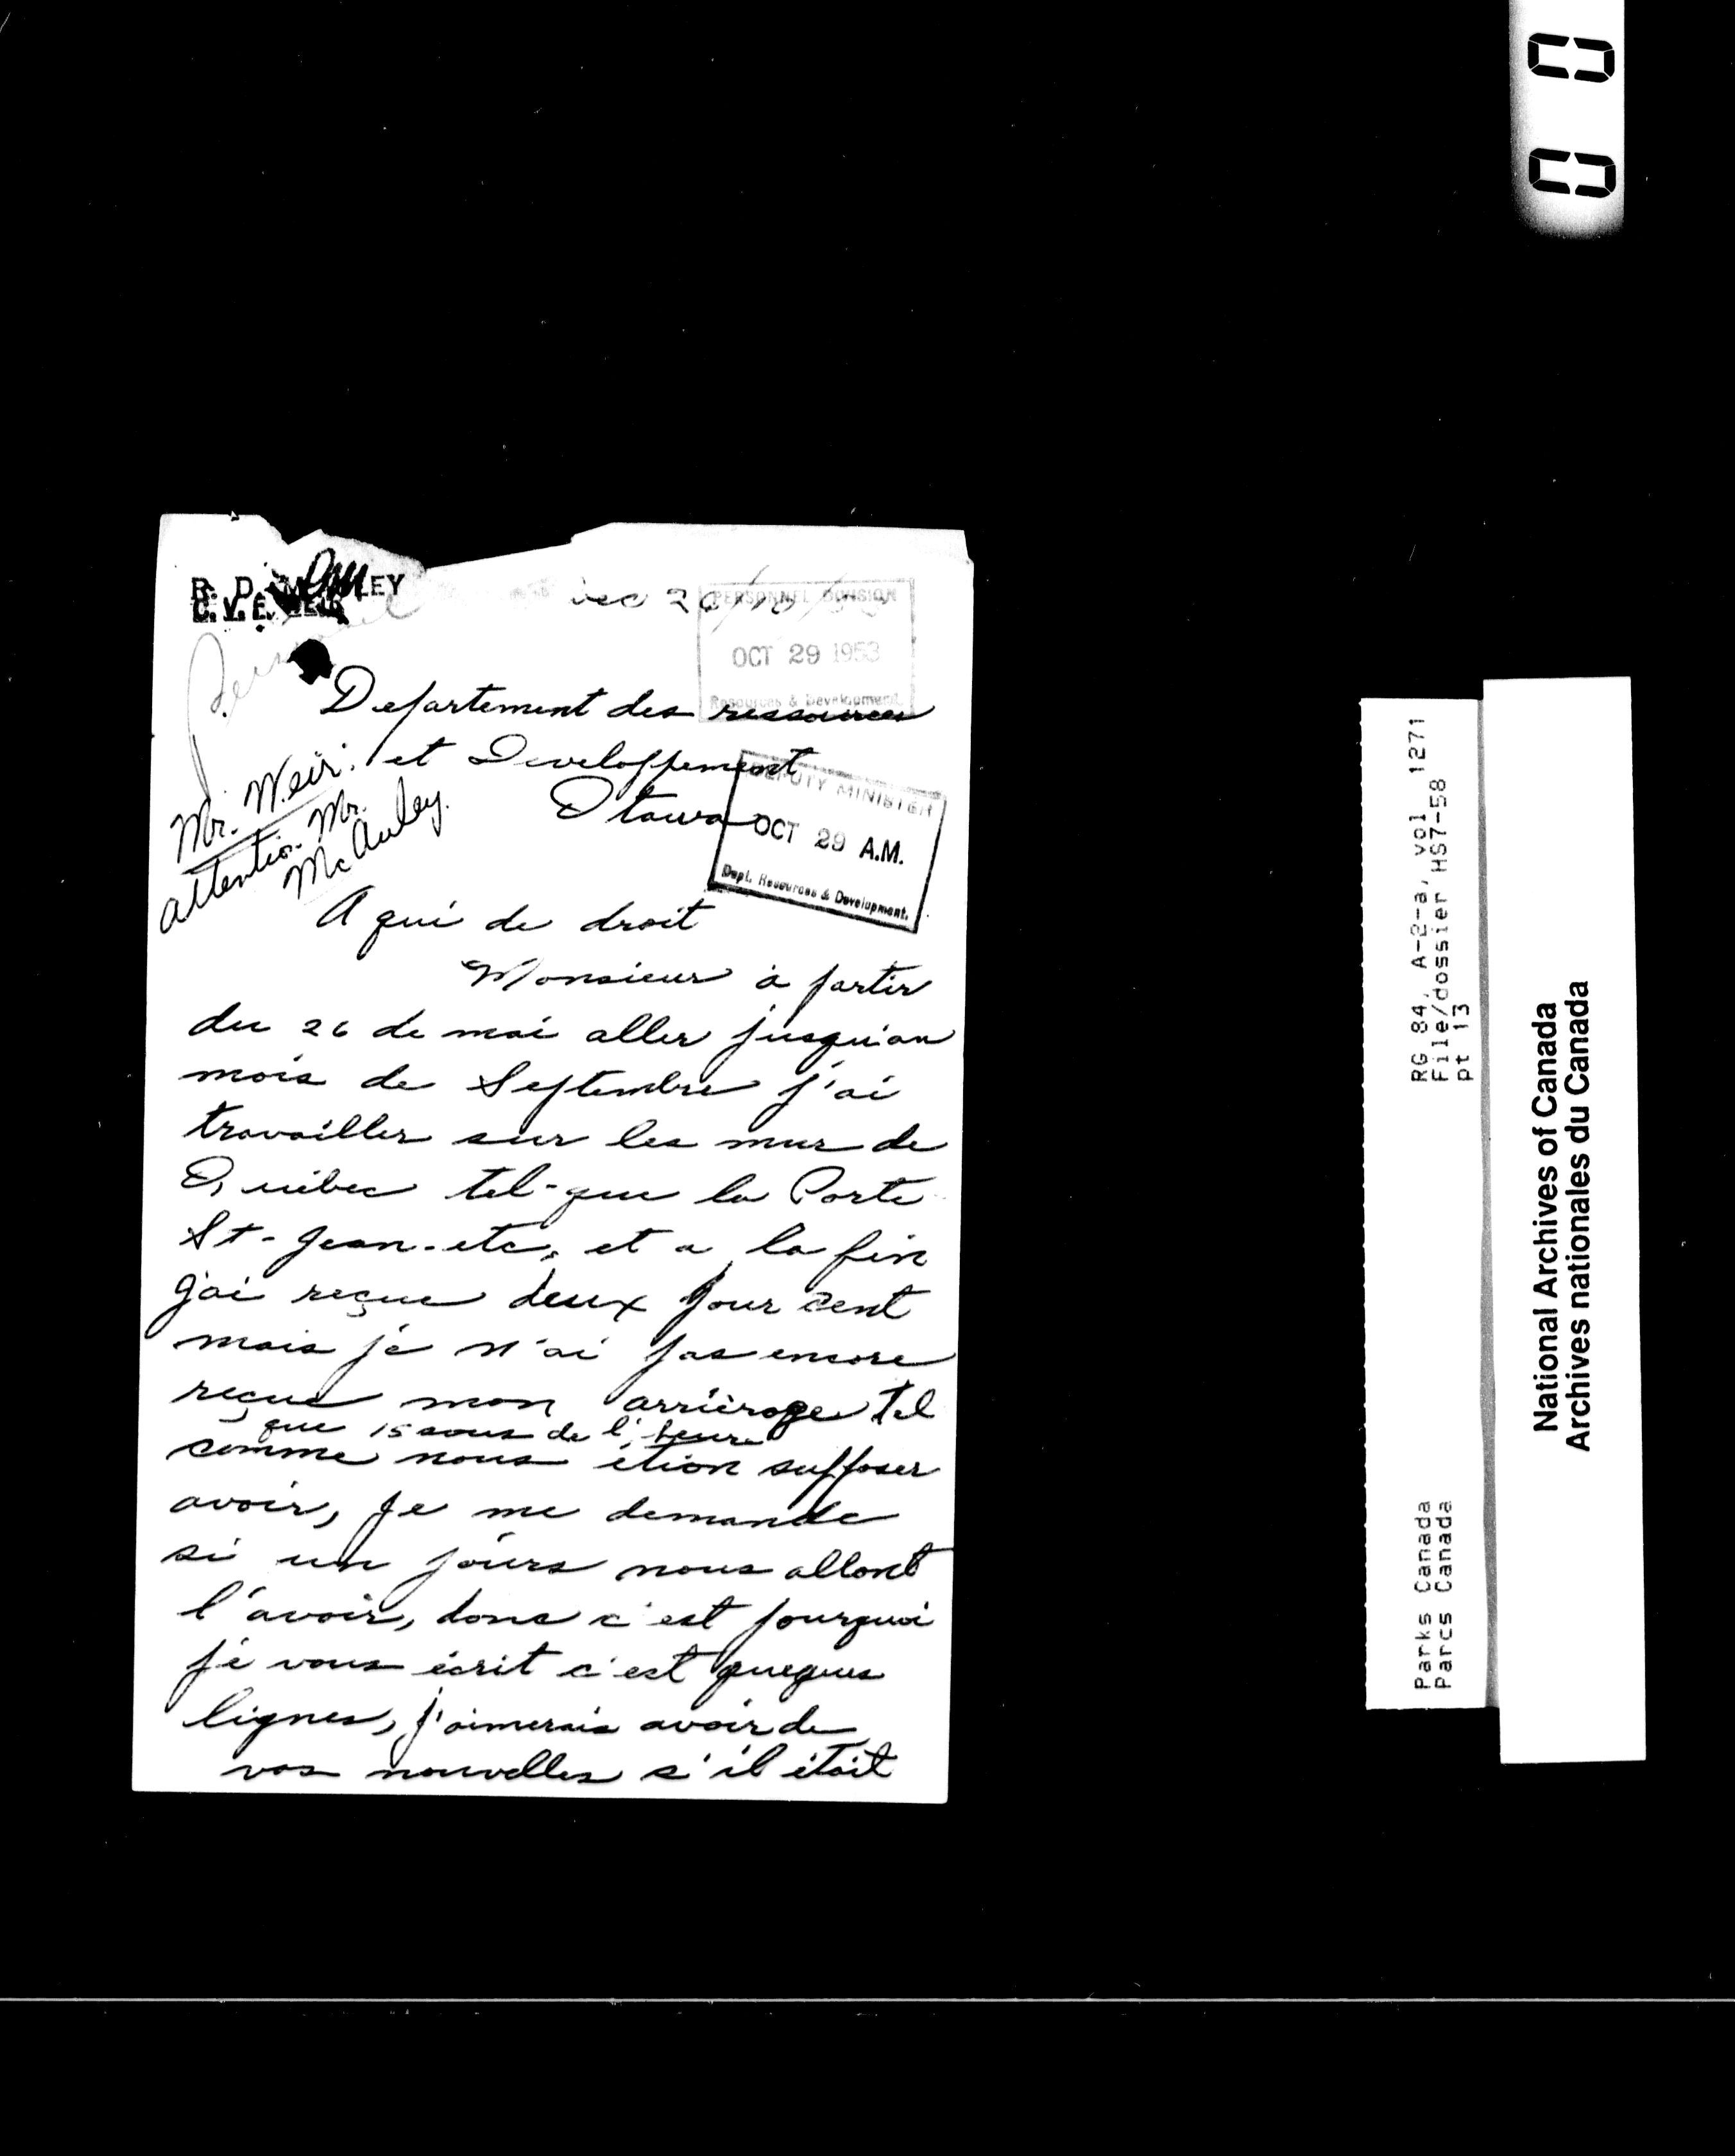 R. D. EY
C. V. F. WEIR
PERSONNEL DIVISION
OCT 29 1953
Resources & Development
Departement des ressources
et Developpement
Otawa
Mr. Weir.
attention Mr.
McAuley.
DEPUTY MINISTER
OCT 29 A.M.
Dept. Resources & Development.
A qui de droit
Monsieur à partir
du 26 de mai aller jusqu'au
mois de Septembre j'ai
travailler sur les mur de
Québec tel-que la Porte
St-Jean-etc, et a la fin
j'ai reçue deux pour cent
mais je n'ai pas encore
reçue mon arriérage tel
que 15 sous de l'heure
comme nous étion supposer
avoir, je me demande
si un jours nous allont
l'avoir, donc c'est pourquoi
je vous écrit c'est queques
lignes, j'aimerais avoir de
vos nouvelles s'il était
RG 84, A-2-a, vol 1271
File/dossier HS7-58
pt 13
Parks Canada
Parcs Canada
National Archives of Canada
Archives nationales du Canada
00